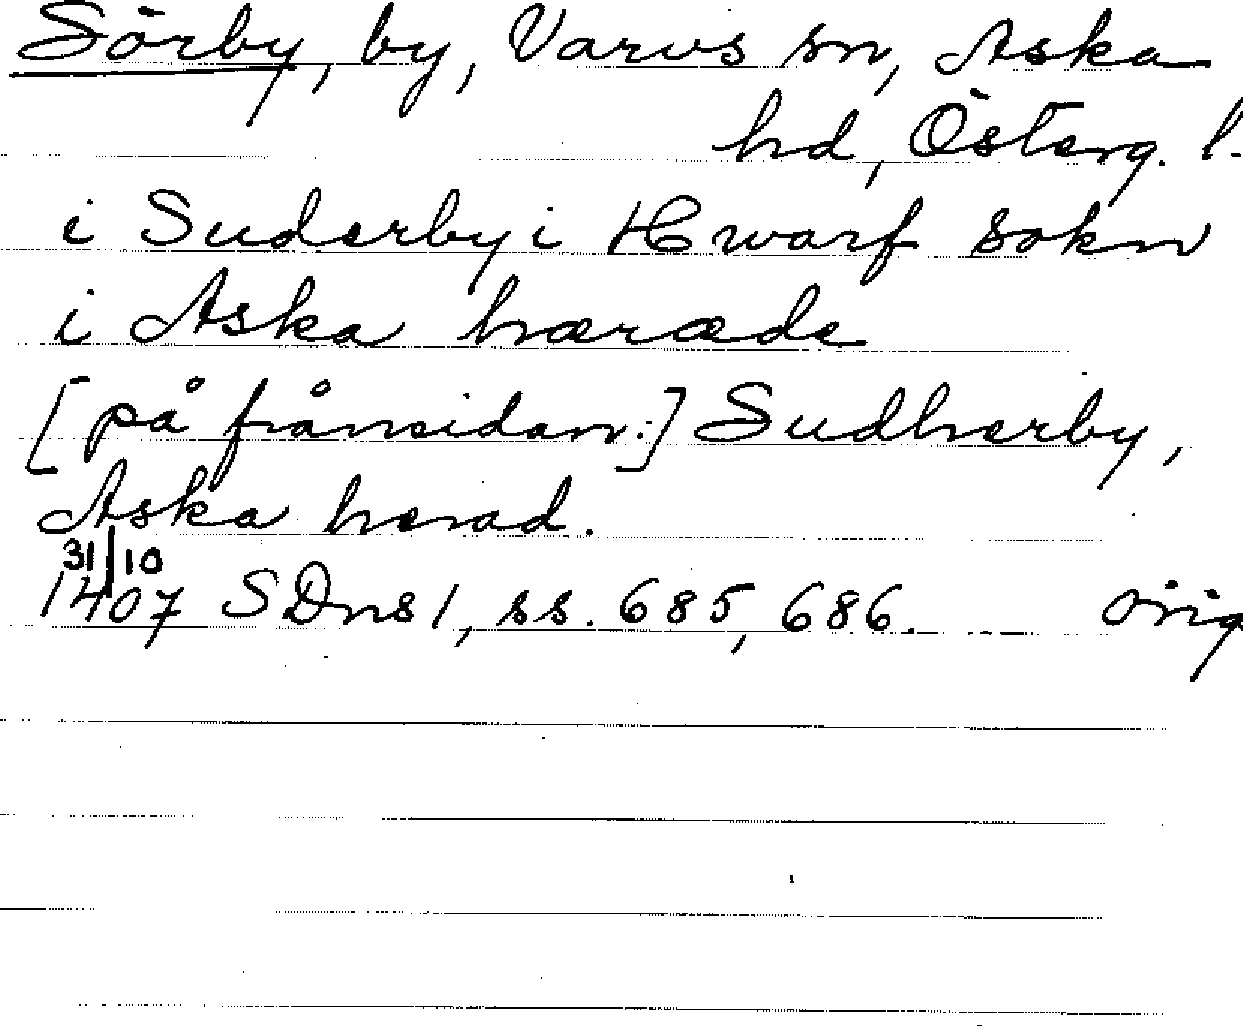 Sörby, by, Varvs sn, Aska
hd, Österg. l.
i Suderby i Hwarf sokn
i Aska hæræde
[på frånsidan:] Sudherby,
Aska herad.
31/10
1407 SDns 1, ss. 685, 686. orig